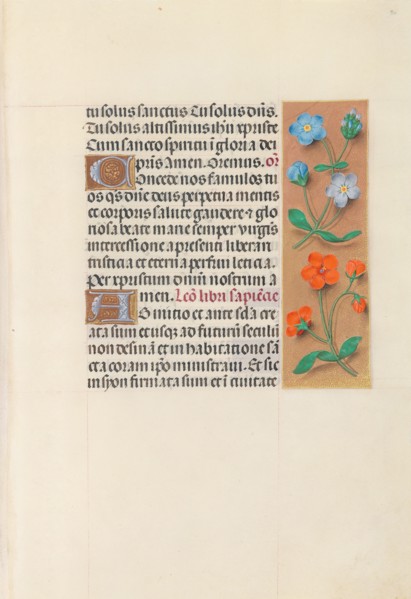 tu solus sanctus Tu solus dñs.
Tu solus altissimus ihũ xpriste
Cum sancto spiritu ĩ gloria dei
pr̃is Amen. Oremus. or̃
Concede nos famulos tu
os qs dñe deus perpetua mentis
et corporis salute gaudere ⁊ glo
riosa beate marie semper virgĩs
intercessione a presenti liberari
tristicia et eterna perfrui leticia.
Per xpristum dñm nostrum a
men. Leõ libri sapiẽcie
Ab initio et ante sc̃la cre
ata sum et usqz ad futurũ seculũ
non desinã et in habitatione sã
cta coram ip̃o ministravi. Et sic
in syon firmata sum et ĩ civitate